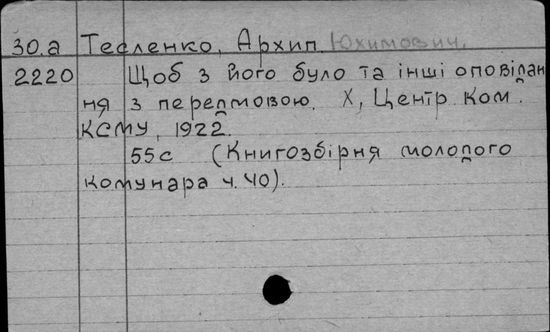 30.а Тесленко, Архип Юхимович.
2220 Щоб з його було та інші оповідан
ня з передмовою. Х, Центр. Ком.
КСМУ, 1922.
55с (Книгозбірня молодого
комунара ч. 40).